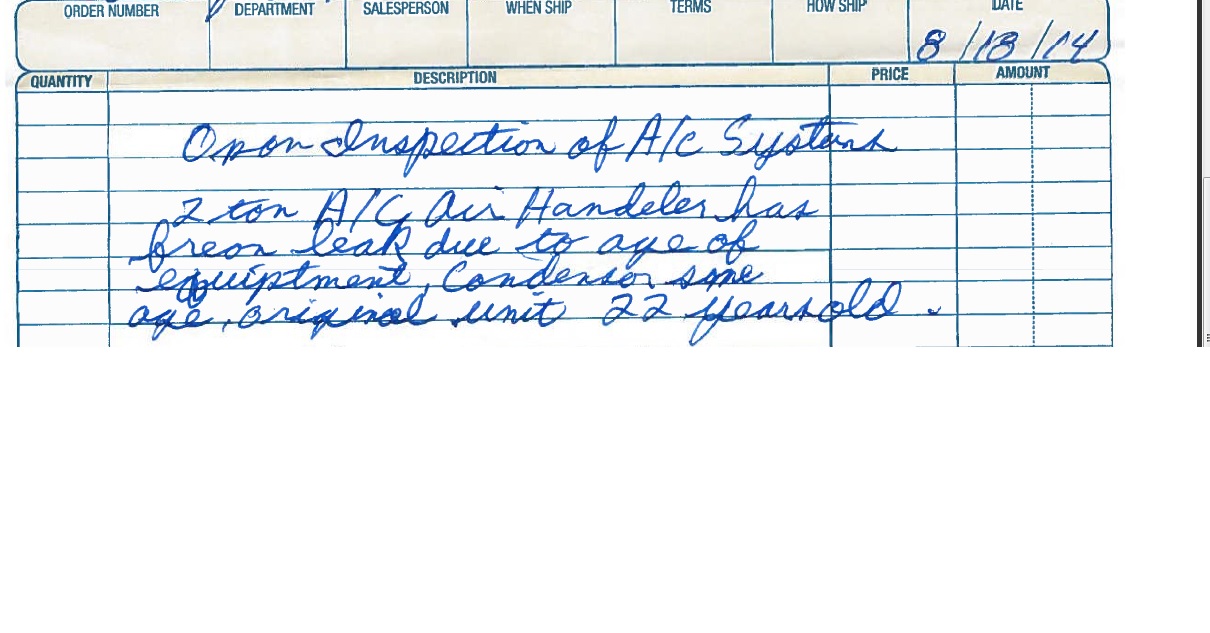 ORDER NUMBER DEPARTMENT SALESPERSON WHEN SHIP TERMS HOW SHIP DATE
8/13/14
QUANTITY DESCRIPTION PRICE AMOUNT
Opon Inspection of A/C Systems
2 ton A/C Air Handeler has
freon leak due to age of
equiptment, Condensor same
age, original unit 22 years old.